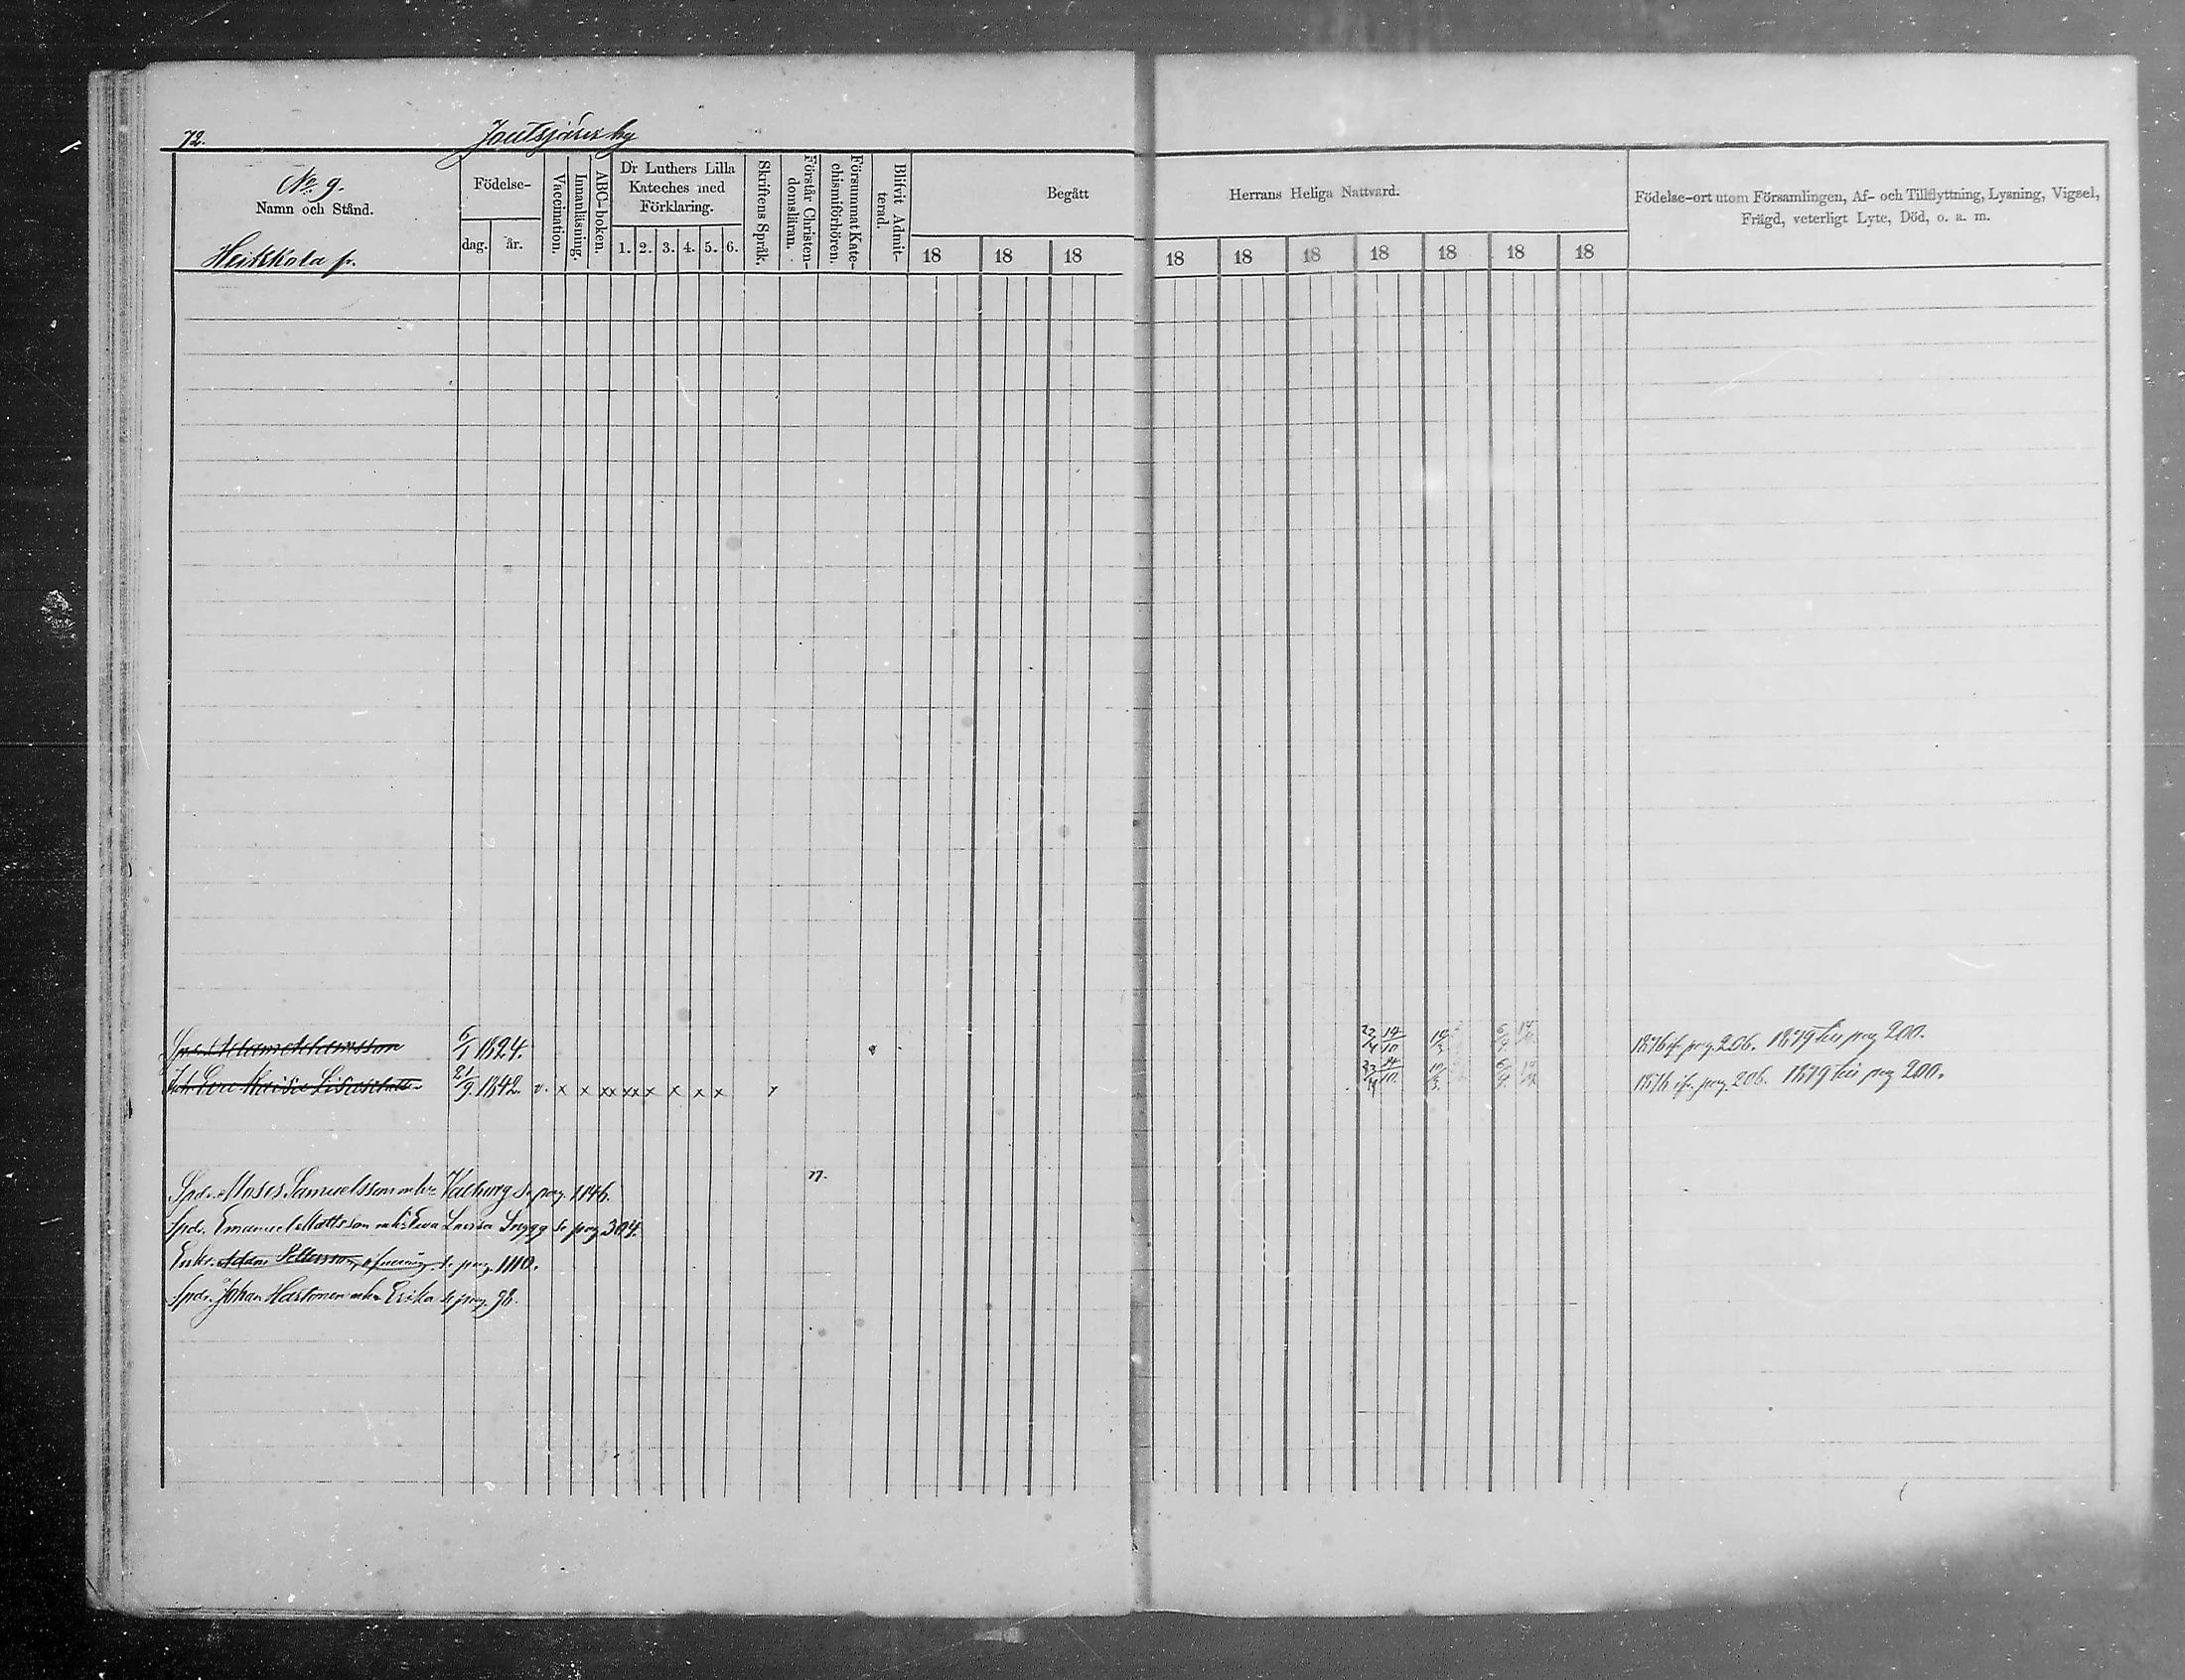 72. Joutsjärvi by
No. 9.
Namn och Stånd.
Heikkola p.
Födelse-
dag. år.
Vaccination.
Innanläsning.
ABC-boken.
Dr Luthers Lilla
Kateches med
Förklaring.
1. 2. 3. 4. 5. 6.
Skriftens Språk.
Förstår Christen-
domsläran.
Försummat Kate-
chismiförhören.
Blifvit Admit-
terad.
Begått Herrans Heliga Nattvard.
18 18 18 18 18 18 18 18 18 18
Födelse-ort utom Församlingen, Af- och Tillflyttning, Lysning, Vigsel,
Frägd, veterligt Lyte, Död, o. a. m.
Adamsson 6/1 1824. 1876 ifr. pag. 206. 1879 till pag 200.
Eva Maria 21/9. 1842. v. x x xx xx x x x x 1876 ifr. pag. 206. 1879 till pag 200.
n.
Spdr. Moses Samuelsson Valborg se pag. 1146.
Spdr. Emanuel Mattsson Eva Lovisa Snygg se pag 304.
Enkr. Adam Pettersson, se pag. 1110.
Spdr. Johan Hartonen Erika se pag. 98.